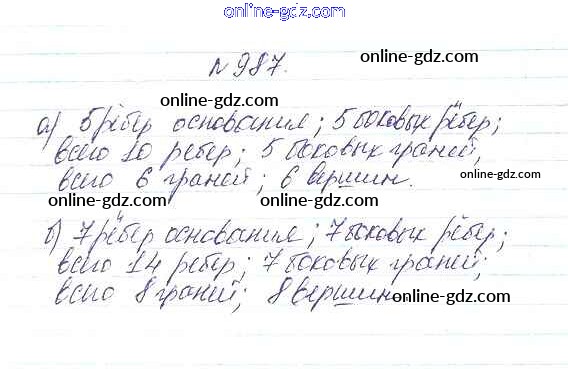 online-gdz.com
№ 987.
online-gdz.com
online-gdz.com
а) 5 рёбер основания; 5 боковых рёбер;
online-gdz.com
всего 10 ребер; 5 боковых граней;
всего 6 граней; 6 вершин.
online-gdz.com
online-gdz.com
online-gdz.com
б) 7 рёбер основания; 7 боковых рёбер;
online-gdz.com
всего 14 ребер; 7 боковых граней;
всего 8 граней; 8 вершин.
online-gdz.com
online-gdz.com